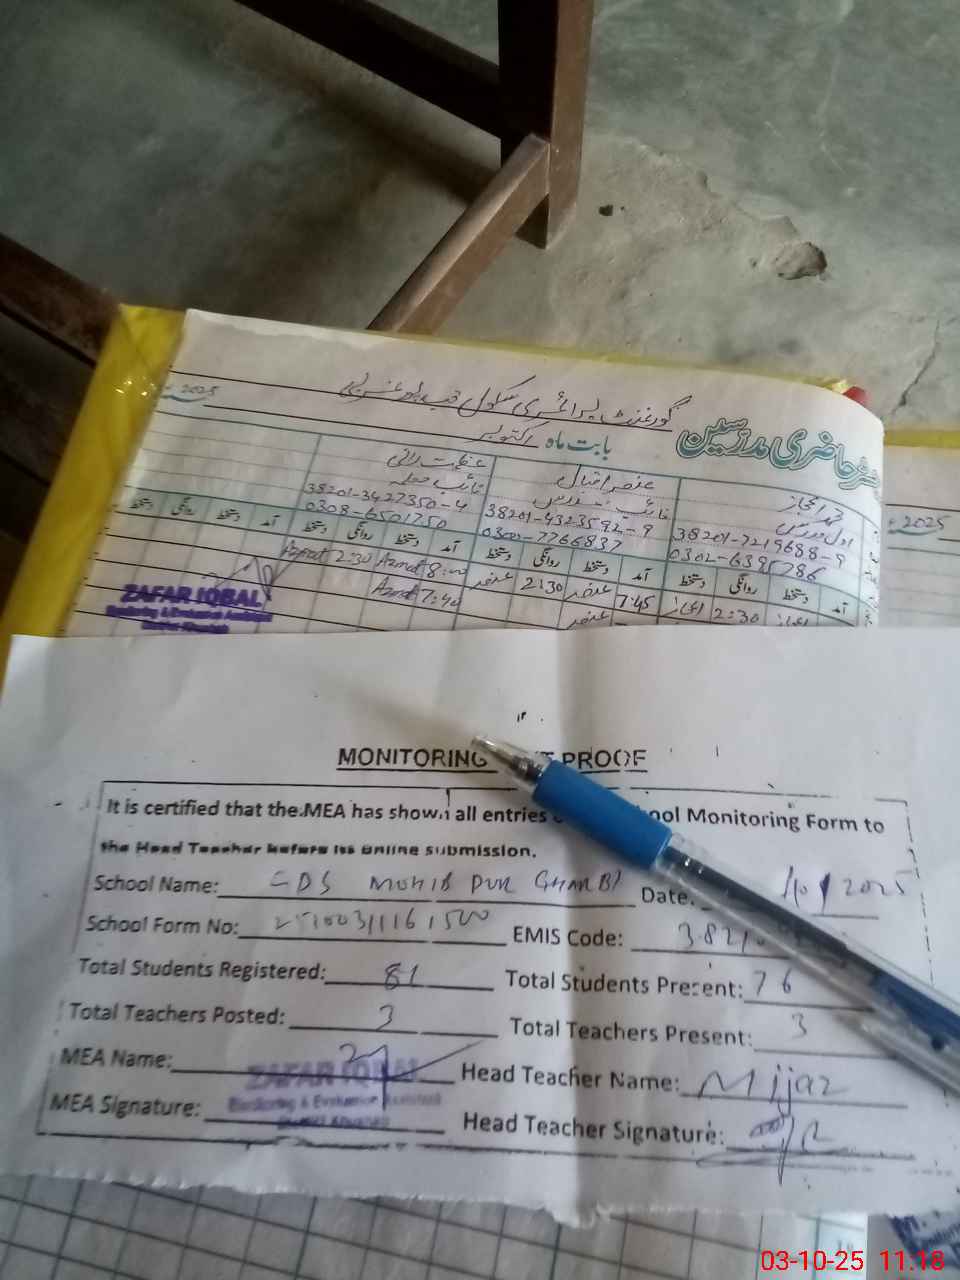 گورنمنٹ پرائمری سکول
رجسٹر حاضری مدرسین
بابت ماہ اکتوبر
2025
عنصر اقبال
38201-3427350-4
38201-4323592-9
38201-7219688-9
0308-6501750
0300-7766837
0302-6395786
آمد دستخط روانگی دستخط آمد دستخط روانگی دستخط آمد دستخط روانگی دستخط
2025
7:45 عنصر 2:30 عنصر Azmat 8:00 Azmat 2:30
اعجاز 2:30 اعجاز
عنصر Azmat 7:40
ZAFAR IQBAL
Monitoring & Evaluation Assistant
District Khushab
MONITORING PROOF
It is certified that the MEA has shown all entries School Monitoring Form to
the Head Teacher before its online submission.
School Name: GDS MOHIB PUR GHARBI Date: 2025
School Form No: EMIS Code:
Total Students Registered: 81 Total Students Present: 76
Total Teachers Posted: 3 Total Teachers Present: 3
MEA Name: Head Teacher Name: M ijaz
ZAFAR IQBAL
Monitoring & Evaluation Assistant
District Khushab
MEA Signature: Head Teacher Signature:
03-10-25 11:18